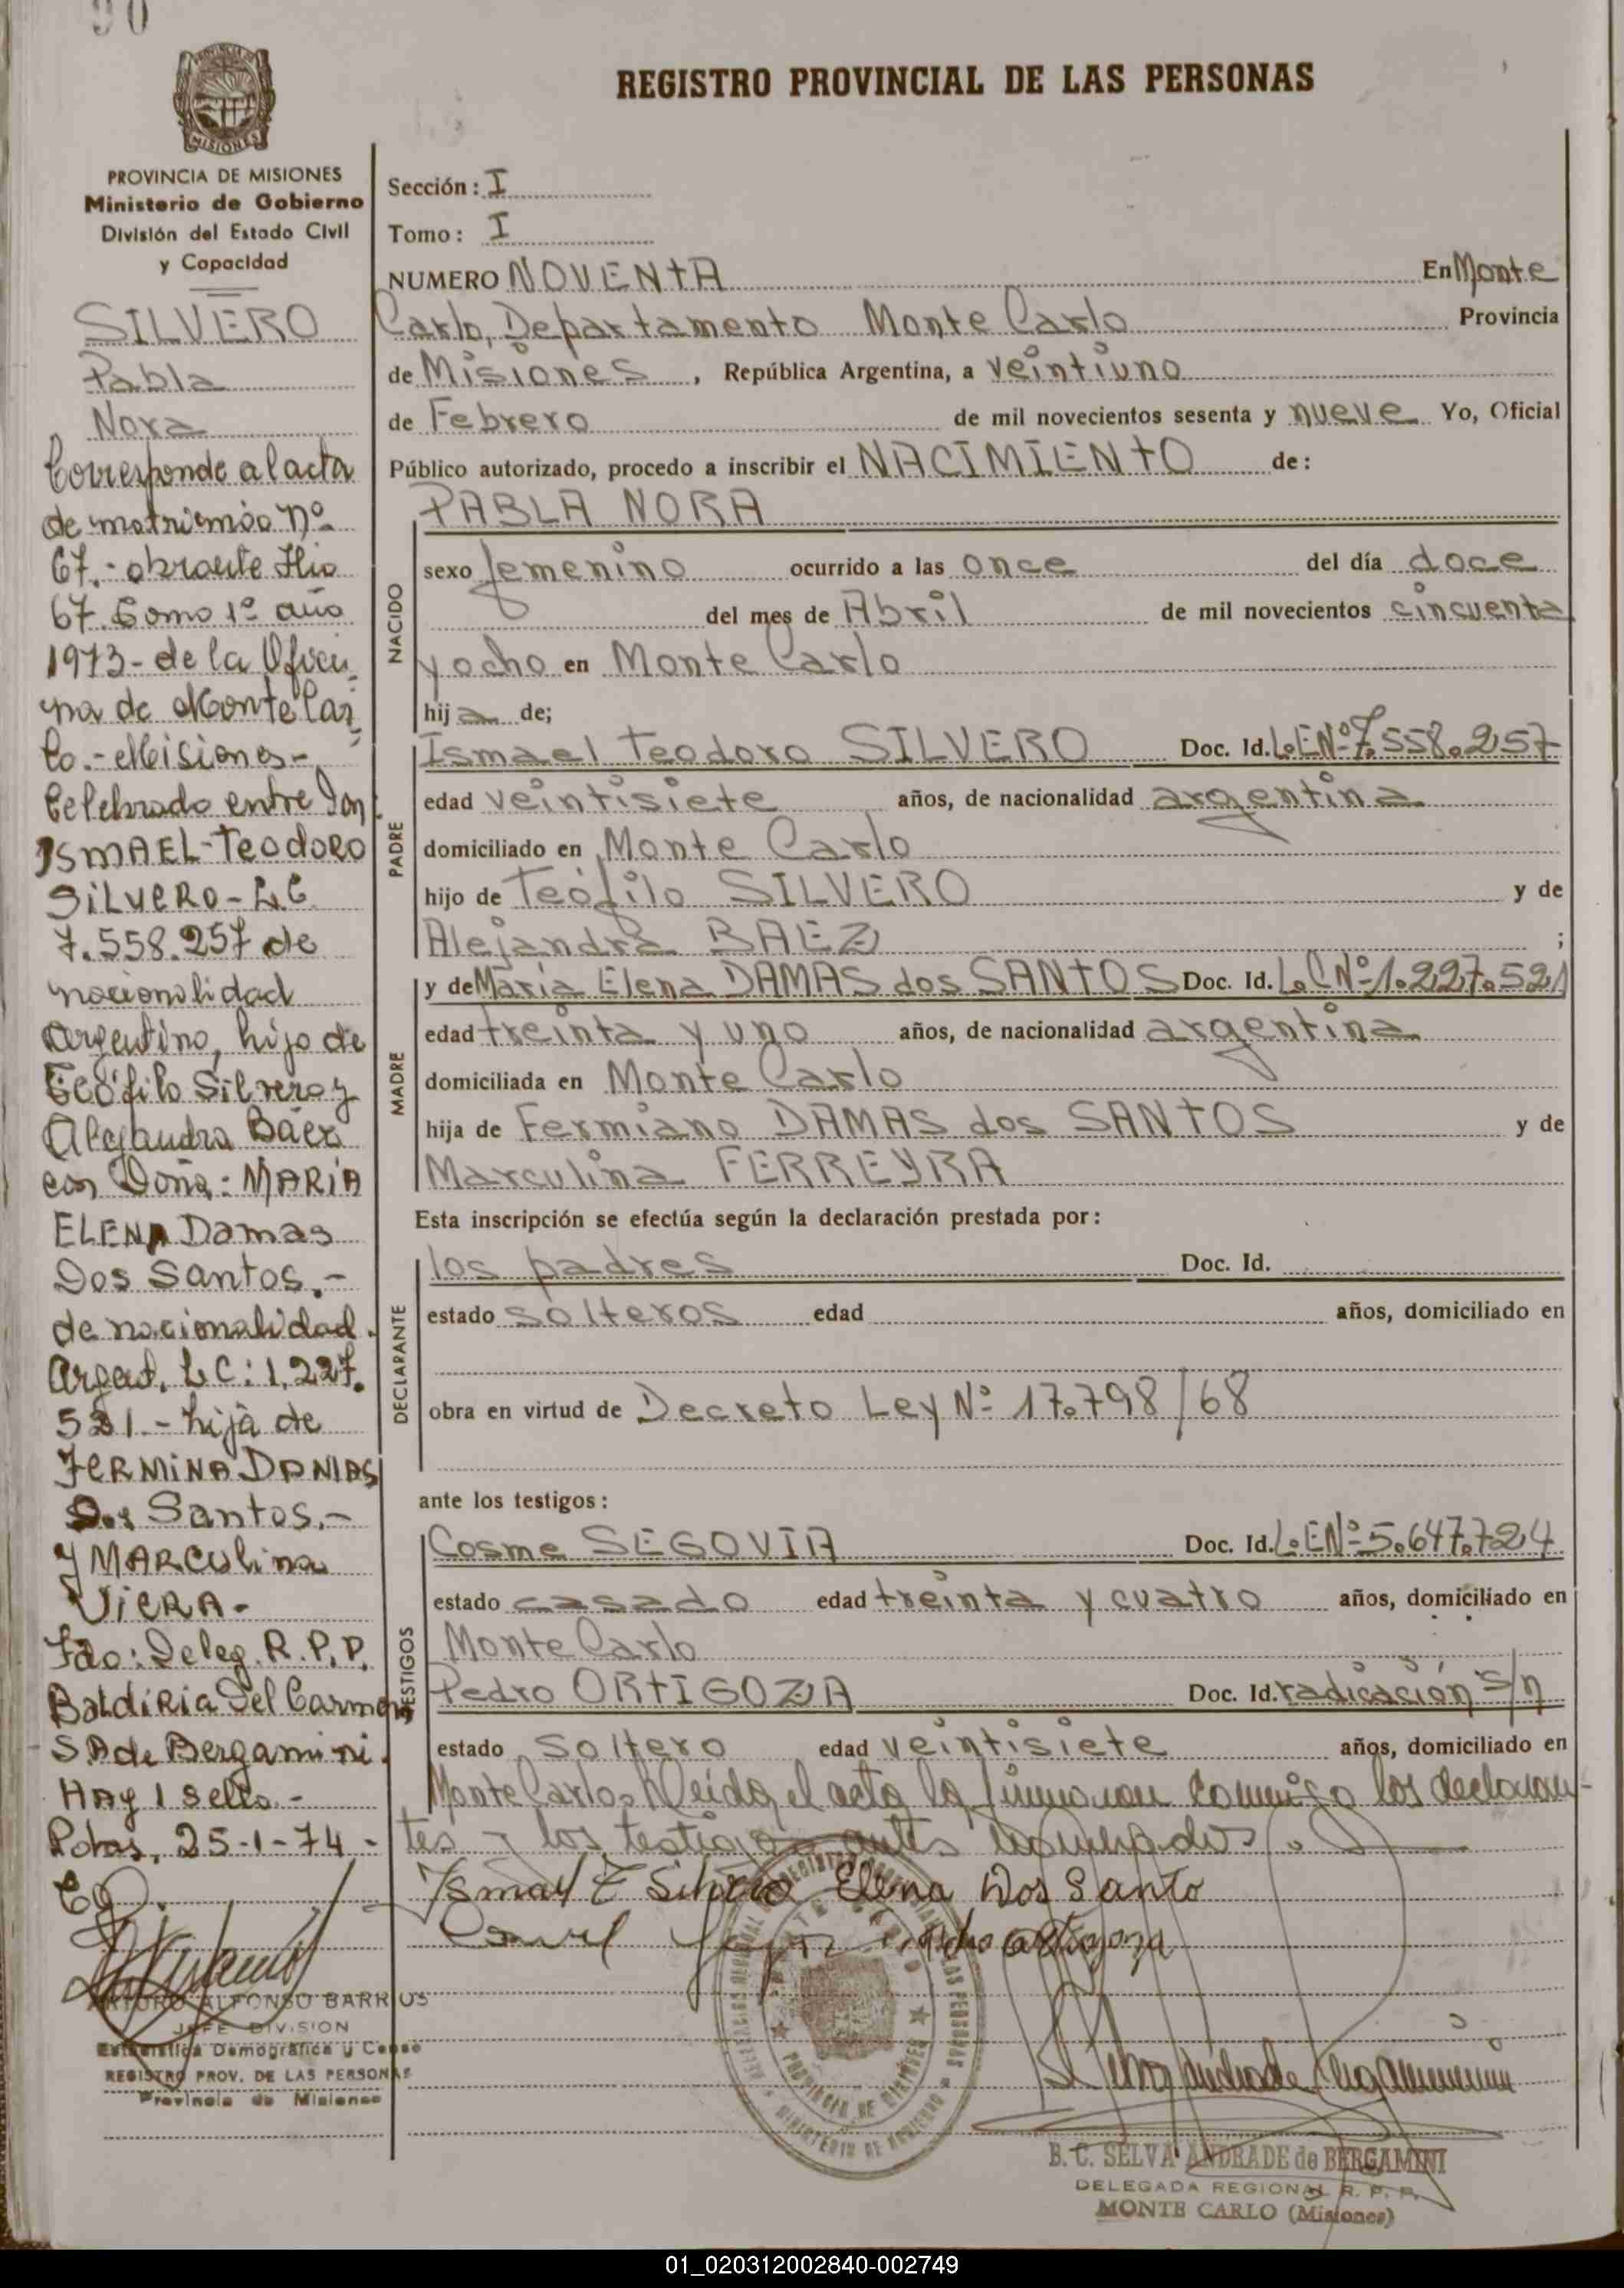 90
REGISTRO PROVINCIAL DE LAS PERSONAS
MISIONES
PROVINCIA DE MISIONES
Ministerio de Gobierno
División del Estado Civil
y Capacidad
SILVERO
Pabla
Nora
Corresponde al acta
de matrimonio nº
67.- obrante
67 Tomo 1º año
1973- de la Ofici
na de Monte Car
lo.- Misiones-
Celebrado entre Don
ISMAEL-TEODORO
SILVERO-
7.558.257 de
nacionalidad
Argentino, hijo de
Teófilo Silvero y
Alejandra Báez
con Doña: MARIA
ELENA Damas
Dos Santos.-
de nacionalidad
Argent. L C: 1.227.
521.- hija de
FERMINA DAMAS
Dos Santos.-
y MARCulina
ViERA-
Fdo: Deleg. R.P.P.
Baldiria del Carmen
S A de Bergamini.
HAy 1 sello.-
Pdas, 25-1-74-
ARTURO ALFONSO BARRIOS
JEFE DIVISION
Estadística Demográfica y Censo
REGISTRO PROV. DE LAS PERSONAS
Provincia de Misiones
Sección: I
Tomo: I
NUMERO NOVENTA En Monte
Carlo, Departamento Monte Carlo Provincia
de Misiones, República Argentina, a veintiuno
de Febrero de mil novecientos sesenta y nueve Yo, Oficial
Público autorizado, procedo a inscribir el NACIMIENTO de:
NACIDO
PABLA NORA
sexo femenino ocurrido a las once del día doce
del mes de Abril de mil novecientos cincuenta
y ocho en Monte Carlo
hija de;
PADRE
Ismael Teodoro SILVERO Doc. Id. L.E Nº 7.558.257
edad veintisiete años, de nacionalidad argentina
domiciliado en Monte Carlo
hijo de Teófilo SILVERO y de
Alejandra BAEZ ;
MADRE
y de María Elena DAMAS dos SANTOS Doc. Id. L.C Nº 1.227.521
edad treinta y uno años, de nacionalidad argentina
domiciliada en Monte Carlo
hija de Fermiano DAMAS dos SANTOS y de
Marculina FERREYRA
Esta inscripción se efectúa según la declaración prestada por:
DECLARANTE
los padres Doc. Id.
estado solteros edad años, domiciliado en
obra en virtud de Decreto Ley Nº 17.798/68
ante los testigos:
TESTIGOS
Cosme SEGOVIA Doc. Id. L.E Nº 5.647.724
estado casado edad treinta y cuatro años, domiciliado en
Monte Carlo
Pedro ORTIGOZA Doc. Id. radicación s/n
estado soltero edad veintisiete años, domiciliado en
Monte Carlo. Leída el acta la firman conmigo los declaran-
tes y los testigos antes nombrados.
Ismael T Silvero Elena Dos Santo
Pedro Ortigoza
B. C. SELVA ANDRADE de BERGAMINI
DELEGADA REGIONAL R. P. P.
MONTE CARLO (Misiones)
01_020312002840-002749